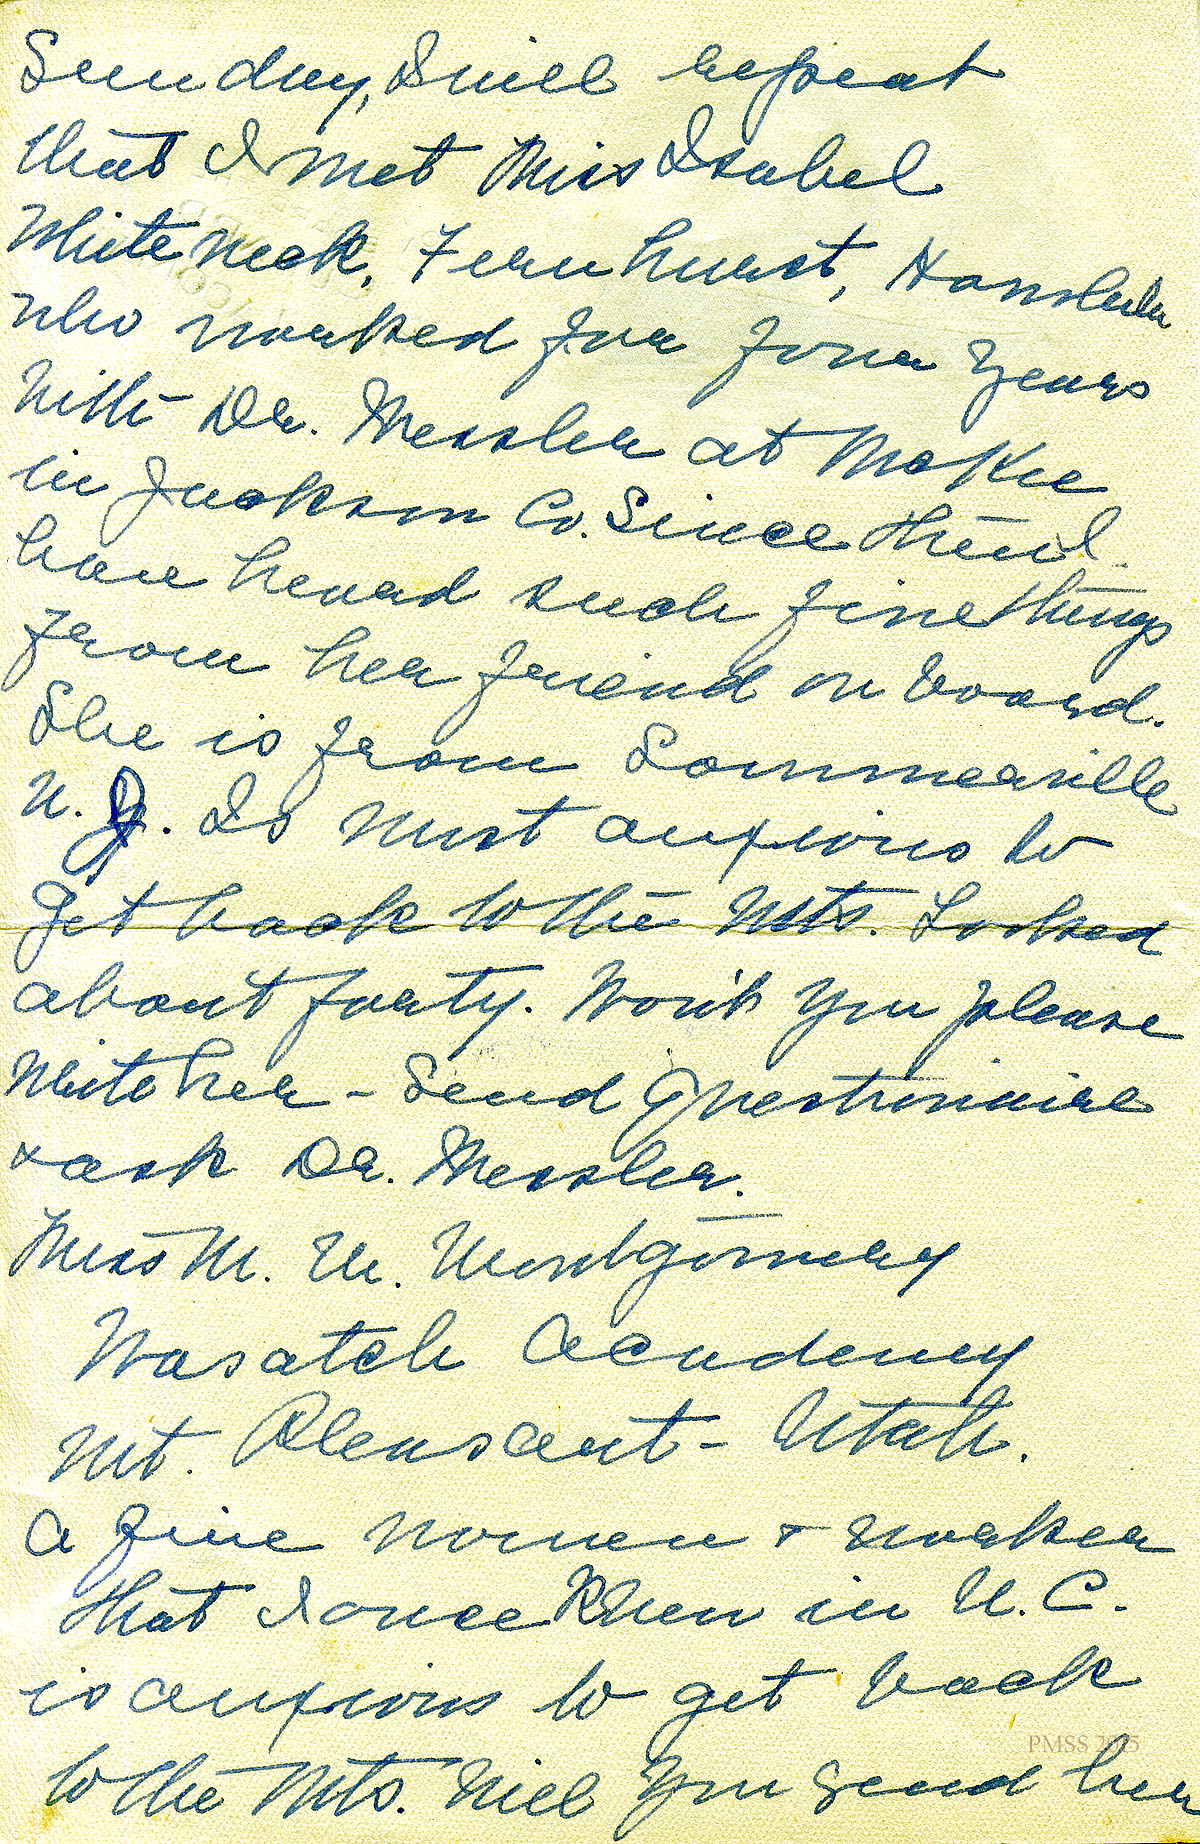 Sunday, I will repeat
that I met Miss Isabel
Whiteneck, Fernhurst, Honolulu
who worked for four years
with Dr. Messler at McKee
in Jackson Co. Since then I
have heard such fine things
from her friend on board.
She is from Sommerville
N. J. Is most anxious to
get back to the Mts. Looked
about forty. Won't you please
write her - Send Questionnaire
+ ask Dr. Messler.
Miss M. W. Montgomery
Wasatch Academy
Mt. Pleasant - Utah.
A fine women + worker
that I once knew in N. C.
is anxious to get back
to the Mts. Will you send her
PMSS 2015